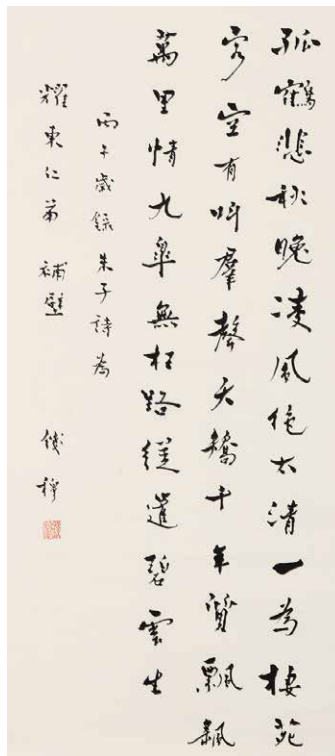 孤鶴悲秋晚凌風絕太清一為棲苑
客空有叫羣聲夭矯千年質飄颻
萬里情九皋無枉路縱遣碧雲生
丙午歲錄朱子詩為
耀東仁弟 補壁 錢穆